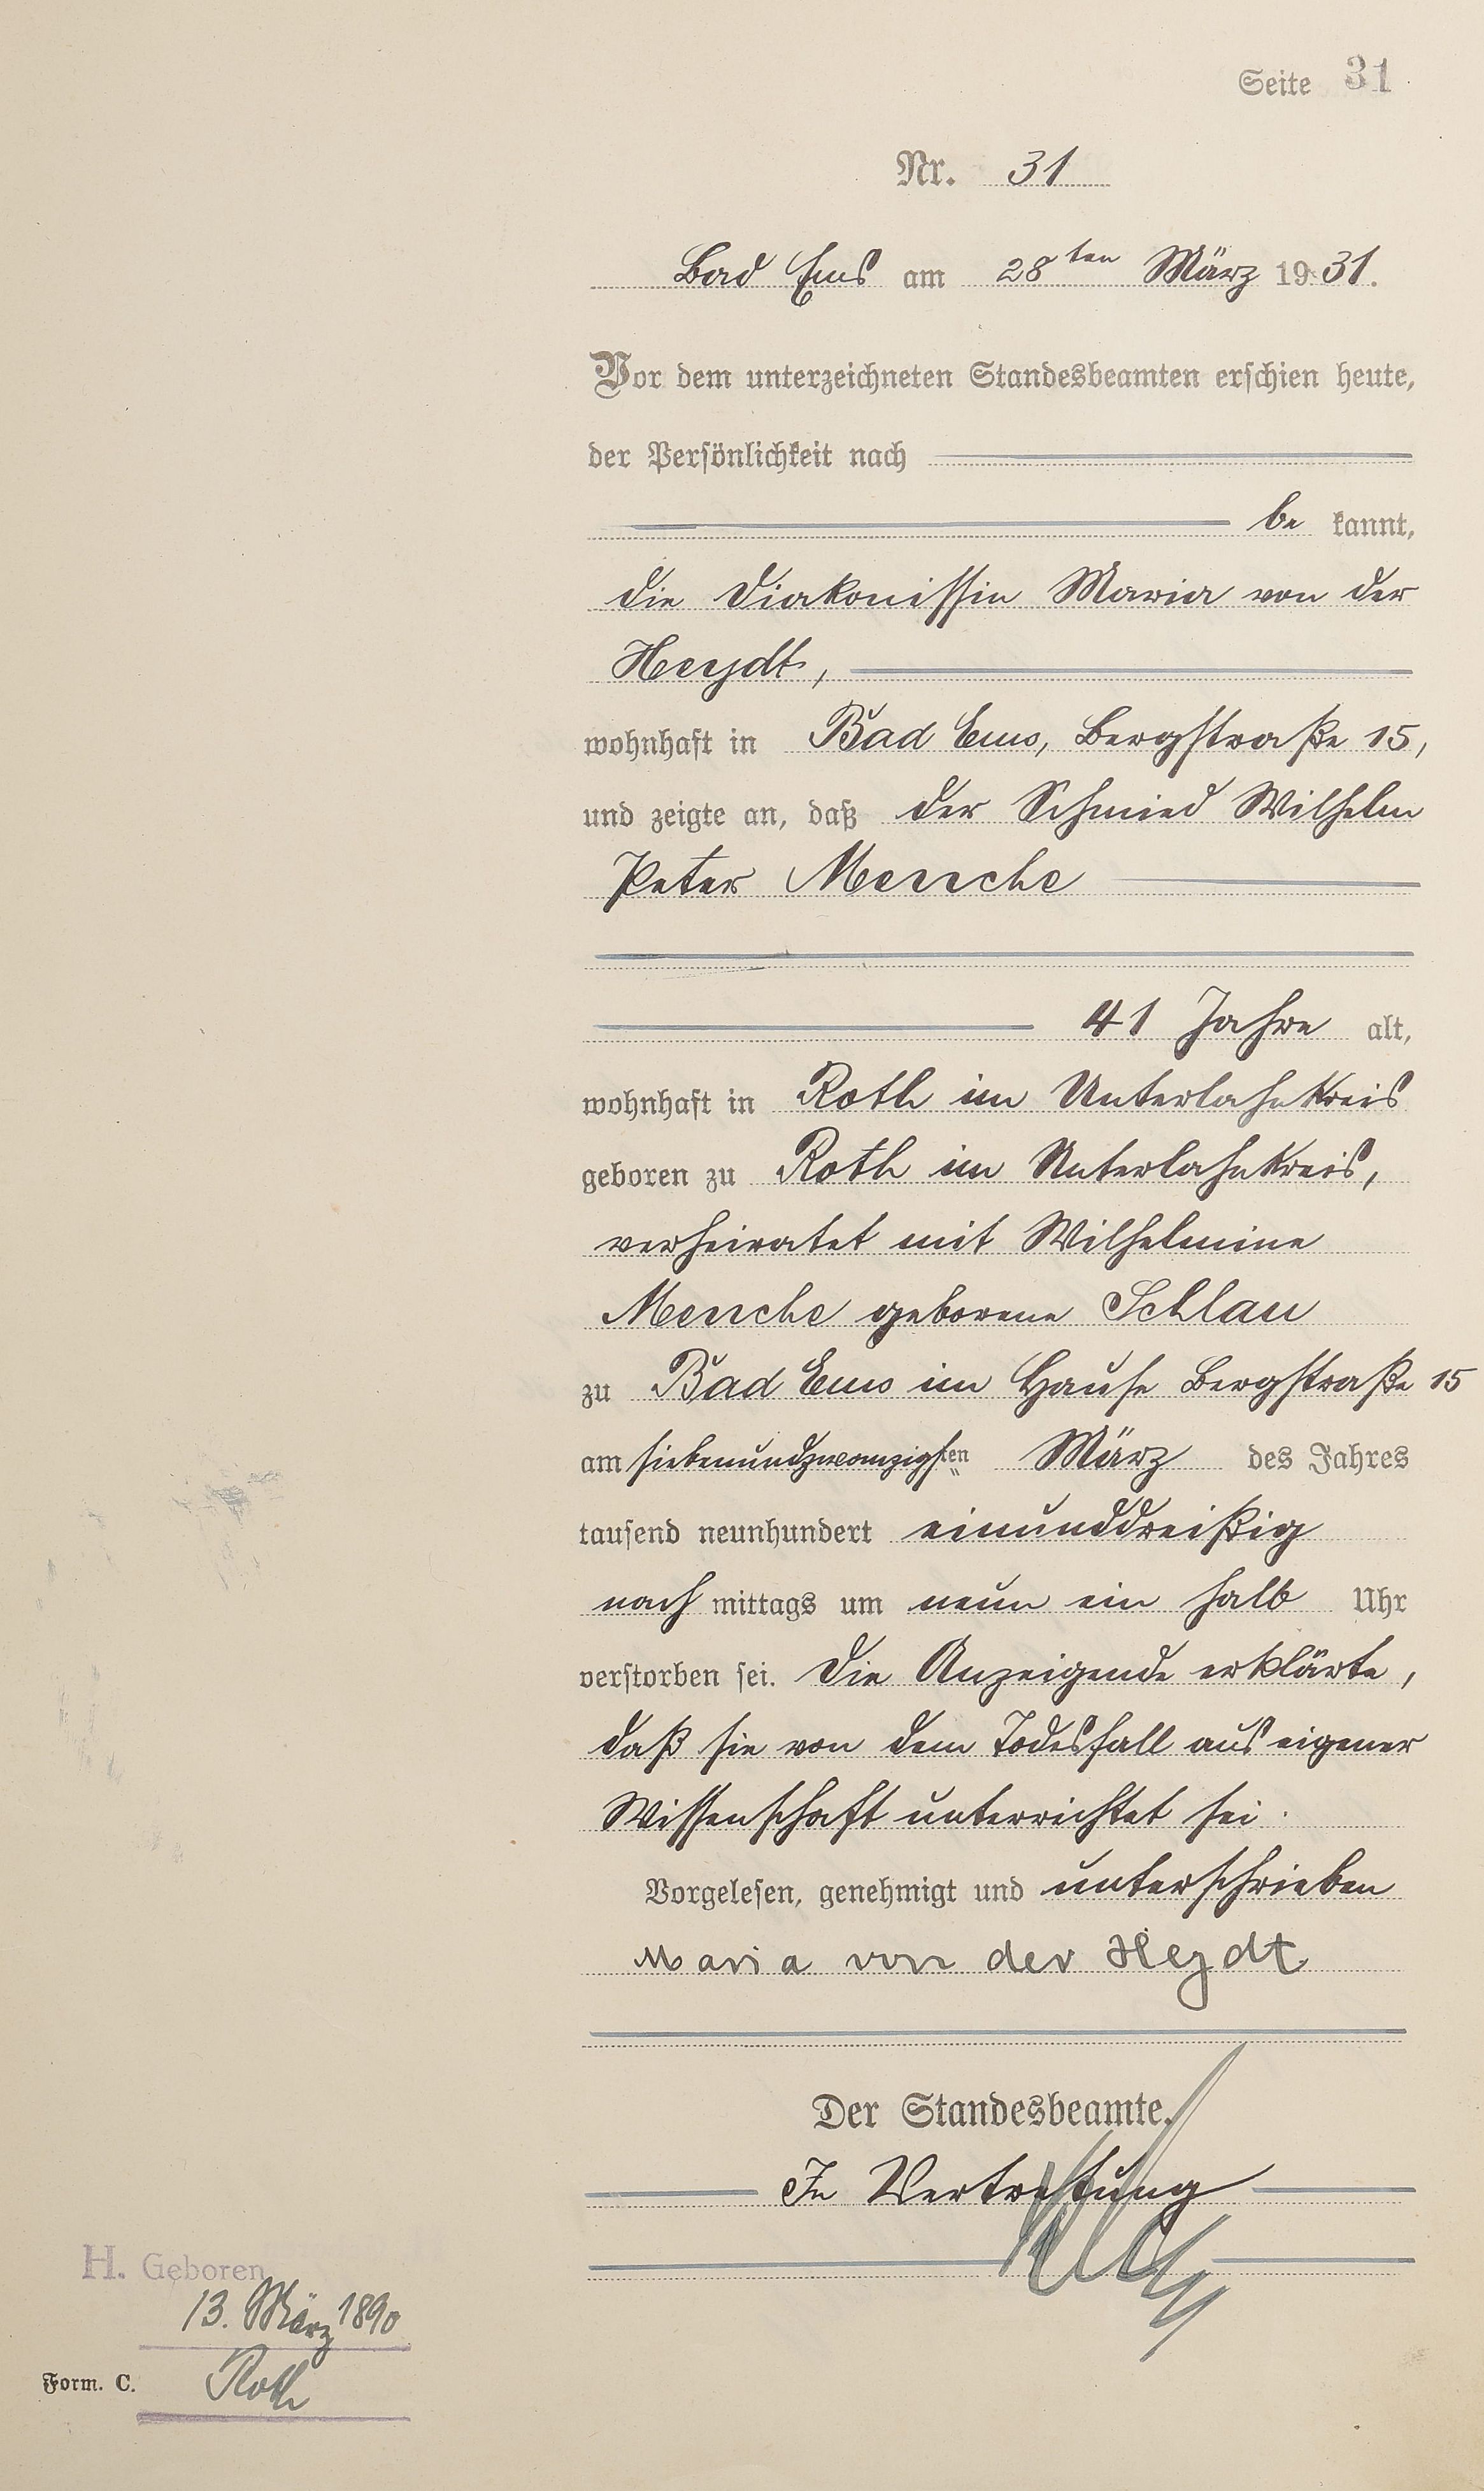 Seite 31
Nr. 31
Bad Ems am 28ten März 1931.
Vor dem unterzeichneten Standesbeamten erschien heute,
der Persönlichkeit nach
be kannt,
die Diakonissin Maria von der
Heydt,
wohnhaft in Bad Ems, Bergstraße 15,
und zeigte an, daß der Schmied Wilhelm
Peter Menche
41 Jahre alt,
wohnhaft in Roth im Unterlahnkreis
geboren zu Roth im Unterlahnkreis,
verheiratet mit Wilhelmine
Menche geborene Schlau
zu Bad Ems im Hause Bergstraße 15
am siebenundzwanzigsten März des Jahres
tausend neunhundert einunddreißig
nach mittags um neun ein halb Uhr
verstorben sei. Die Anzeigende erklärte,
daß sie von dem Todesfall aus eigener
Wissenschaft unterrichtet sei.
Vorgelesen, genehmigt und unterschrieben
Maria von der Heydt
Der Standesbeamte.
In Vertretung
H. Geboren
13. März 1890
Form. C. Roth